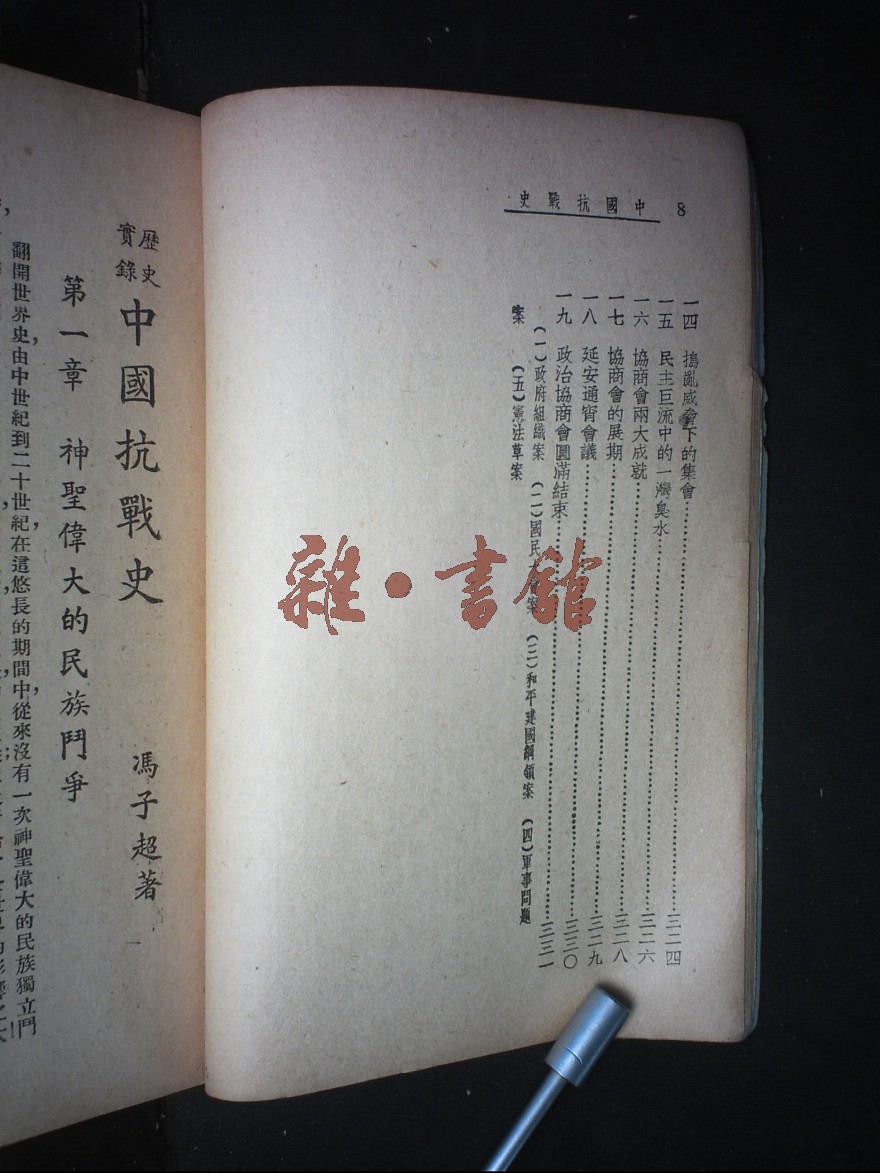 8 中國抗戰史
一四 搗亂威脅下的集會……三二四
一五 民主巨流中的一灣臭水……三二六
一六 協商會兩大成就……三二八
一七 協商會的展期……三二九
一八 延安通宵會議……三三〇
一九 政治協商會圓滿結束……三三一
(一)政府組織案 (二)國民大會案 (三)和平建國綱領案 (四)軍事問題
案 (五)憲法草案
歷史
實錄
中國抗戰史
馮子超著
第一章 神聖偉大的民族鬥爭
翻開世界史,由中世紀到二十世紀,在這悠長的期間中,從來沒有一次神聖偉大的民族獨立鬥
雜·書館